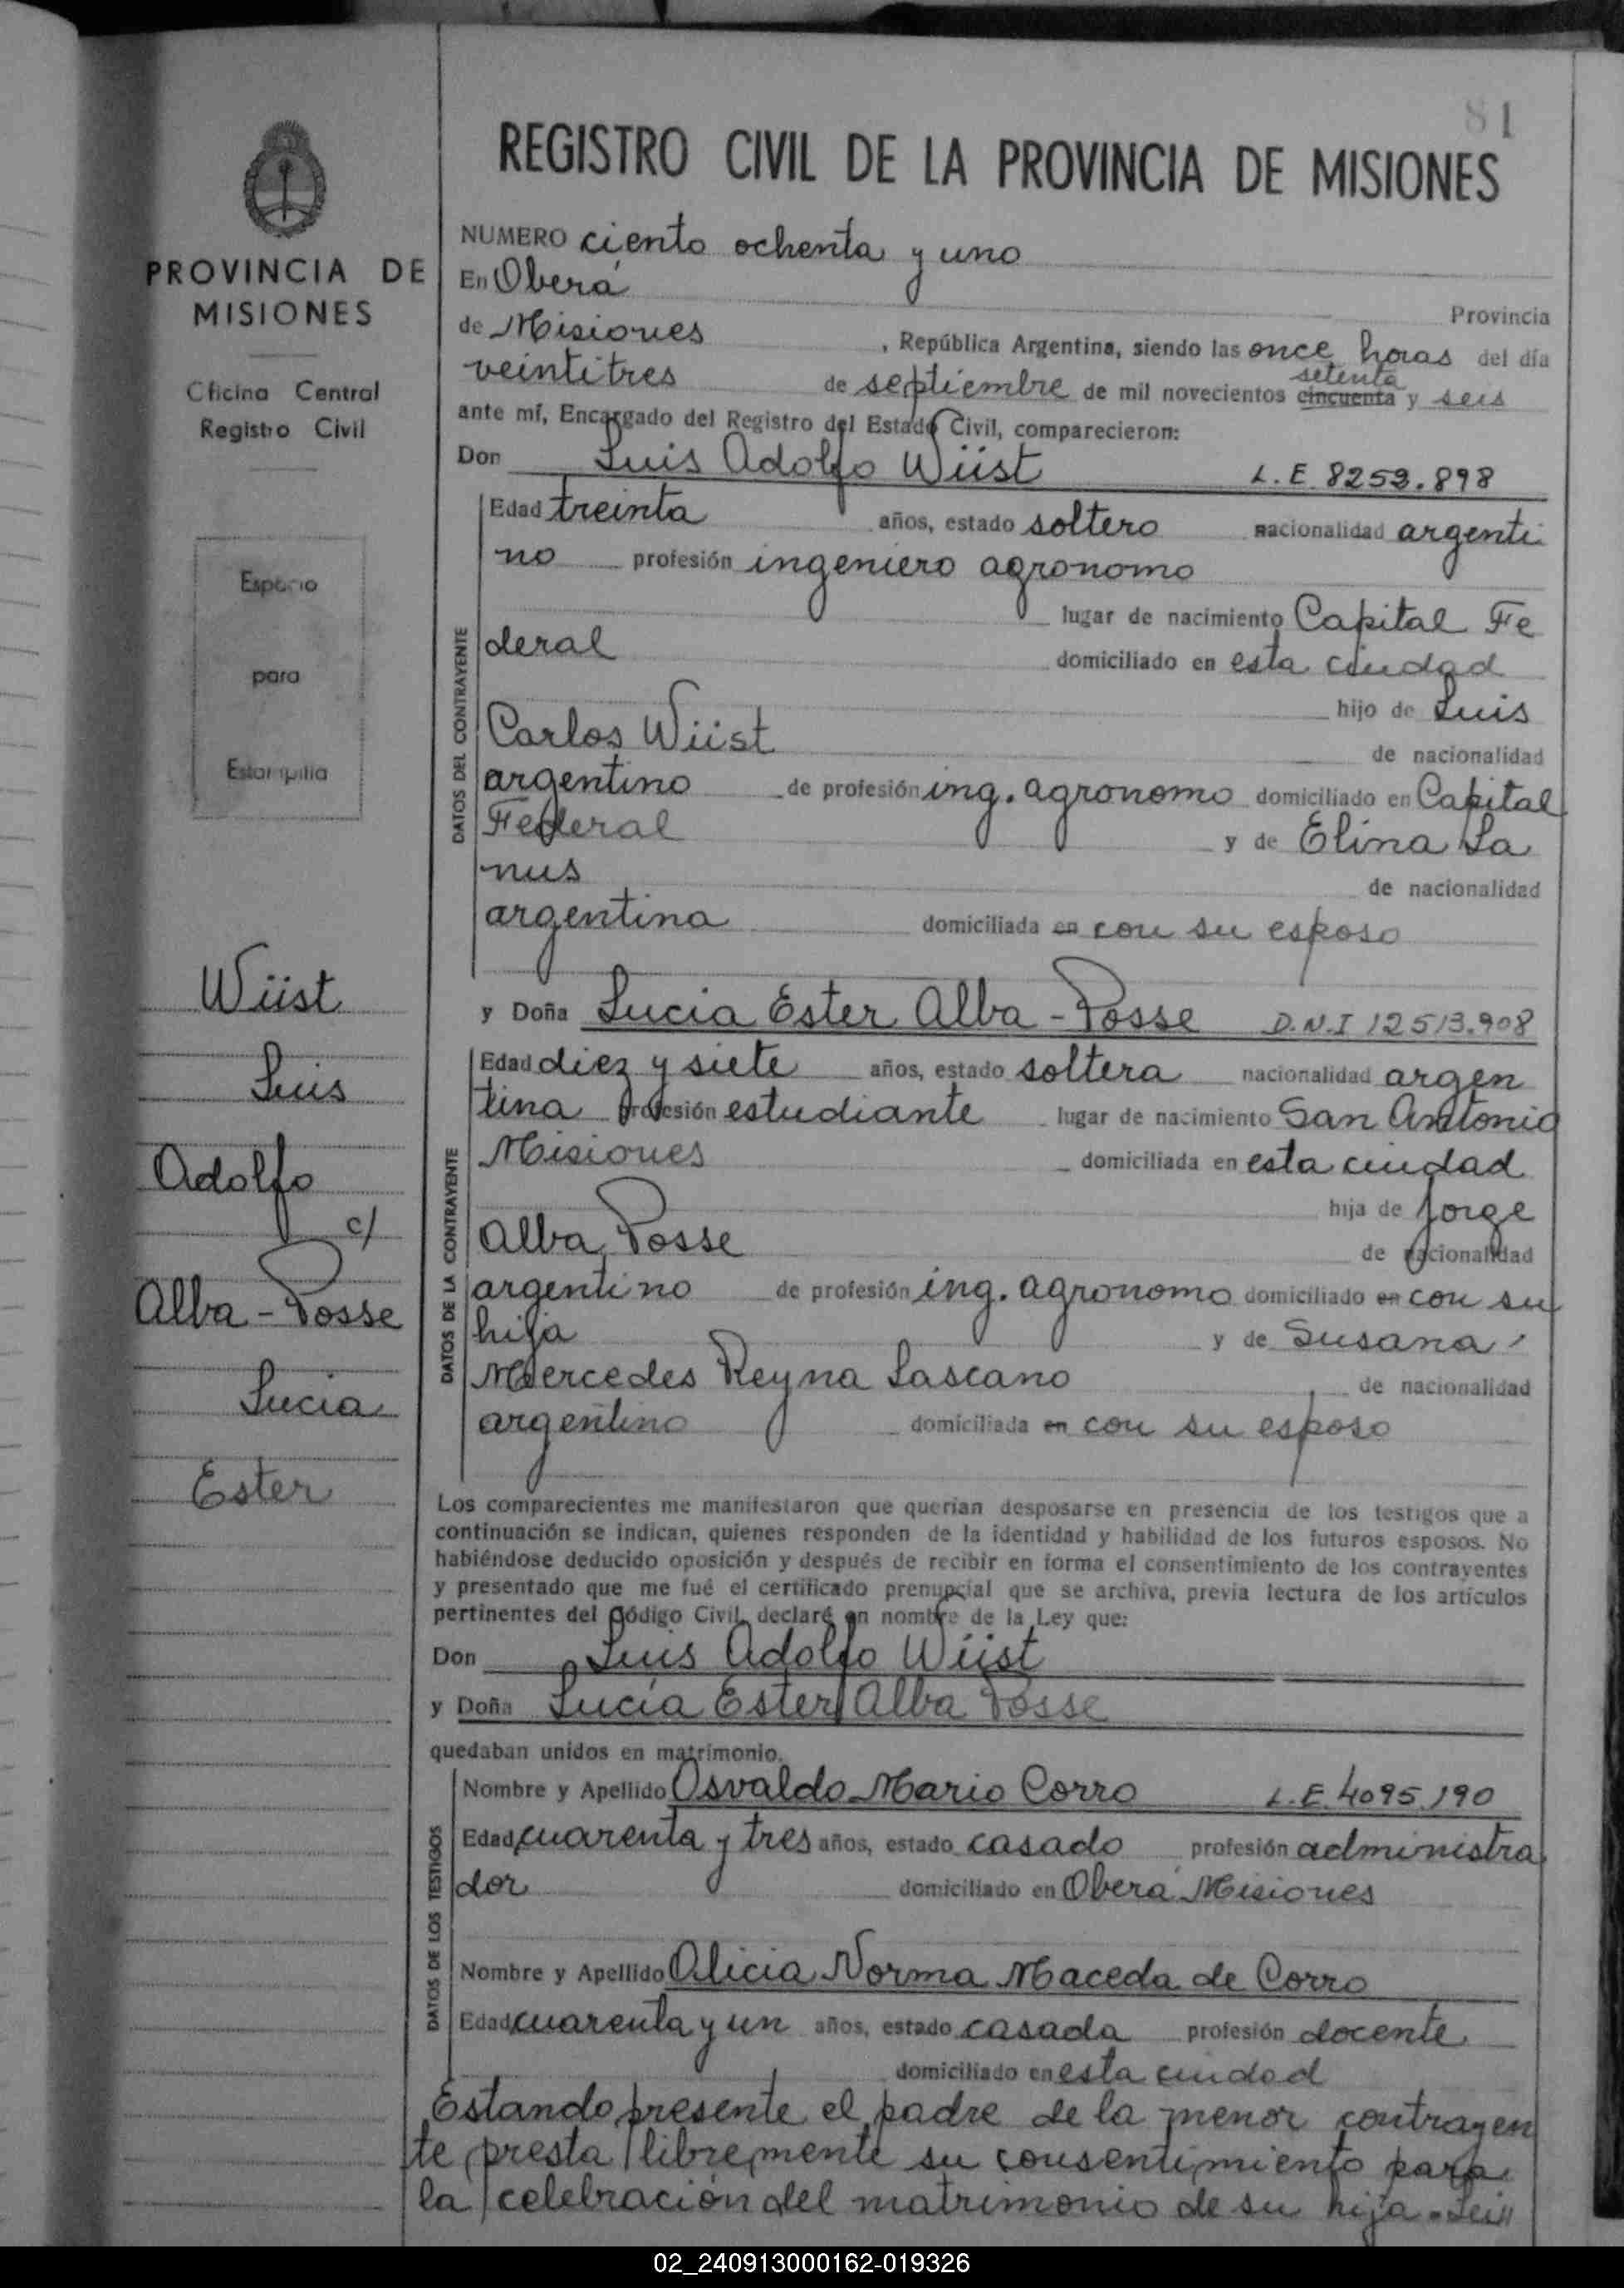 81
REGISTRO CIVIL DE LA PROVINCIA DE MISIONES
PROVINCIA DE
MISIONES
Oficina Central
Registro Civil
Espacio
para
Estampilla
Wüst
Luis
Adolfo
c/
Alba-Posse
Lucia
Ester
NUMERO ciento ochenta y uno
En Oberá
Provincia
de Misiones , República Argentina, siendo las once horas del día
setenta
veintitres de septiembre de mil novecientos cincuenta y seis
ante mí, Encargado del Registro del Estado Civil, comparecieron:
Don Luis Adolfo Wüst L.E. 8253.898
DATOS DEL CONTRAYENTE
Edad treinta años, estado soltero nacionalidad argenti
no profesión ingeniero agronomo
lugar de nacimiento Capital Fe
deral domiciliado en esta ciudad
hijo de Luis
Carlos Wüst de nacionalidad
argentino de profesión ing. agronomo domiciliado en Capital
Federal y de Elina La
nus de nacionalidad
argentina domiciliada en con su esposo
y Doña Lucia Ester Alba-Posse D.N.I 12513.908
DATOS DE LA CONTRAYENTE
Edad diez y siete años, estado soltera nacionalidad argen
tina profesión estudiante lugar de nacimiento San Antonio
Misiones domiciliada en esta ciudad
hija de Jorge
Alba Posse de nacionalidad
argentino de profesión ing. agronomo domiciliado en con su
hija y de Susana
Mercedes Reyna Lascano de nacionalidad
argentino domiciliada en con su esposo
Los comparecientes me manifestaron que querían desposarse en presencia de los testigos que a
continuación se indican, quienes responden de la identidad y habilidad de los futuros esposos. No
habiéndose deducido oposición y después de recibir en forma el consentimiento de los contrayentes
y presentado que me fué el certificado prenupcial que se archiva, previa lectura de los artículos
pertinentes del Código Civil, declaré en nombre de la Ley que:
Don Luis Adolfo Wüst
y Doña Lucía Ester Alba Posse
quedaban unidos en matrimonio.
DATOS DE LOS TESTIGOS
Nombre y Apellido Osvaldo Mario Corro L.E. 4095.190
Edad cuarenta y tres años, estado casado profesión administra
dor domiciliado en Oberá Misiones
Nombre y Apellido Alicia Norma Maceda de Corro
Edad cuarenta y un años, estado casada profesión docente
domiciliado en esta ciudad
Estando presente el padre de la menor contrayen
te presta libremente su consentimiento para
la celebración del matrimonio de su hija.
02_240913000162-019326